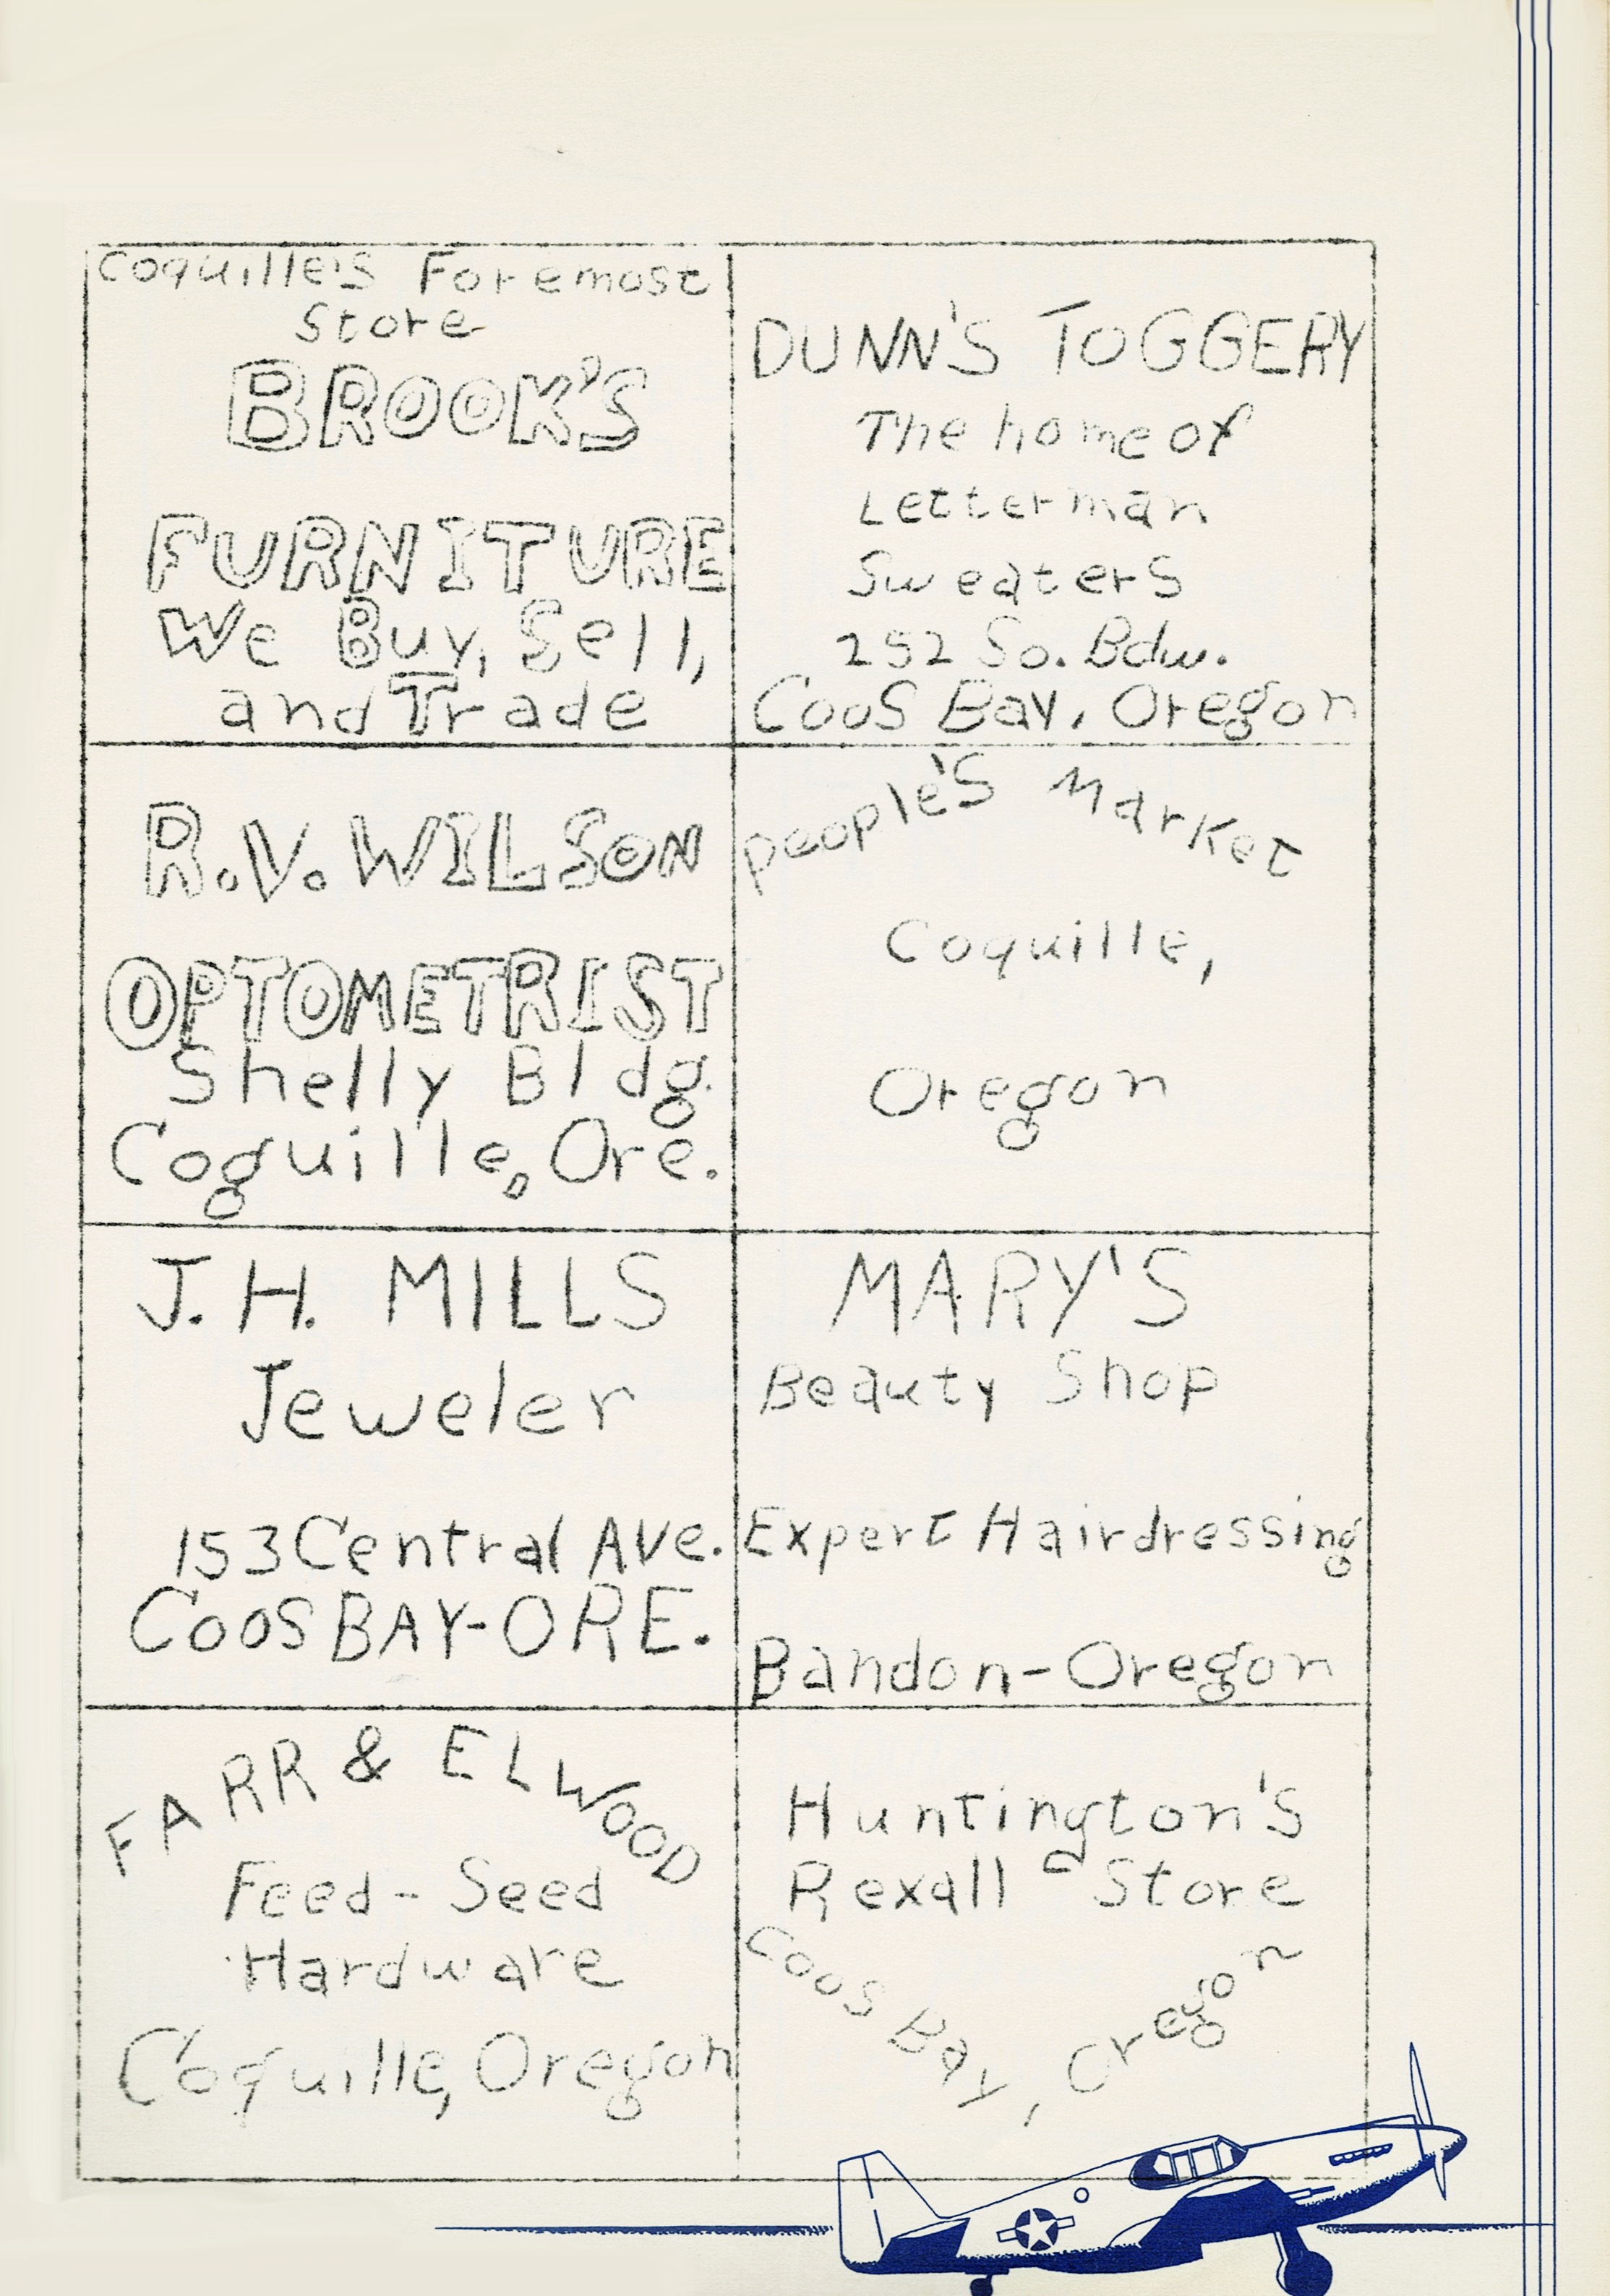 Coquille's Foremost
Store
BROOK'S
FURNITURE
We Buy, Sell,
and Trade
DUNN'S TOGGERY
The home of
Letterman
Sweaters
252 So. Bdw.
Coos Bay, Oregon
R.V. WILSON
OPTOMETRIST
Shelly Bldg.
Coquille, Ore.
People's Market
Coquille,
Oregon
J. H. MILLS
Jeweler
153 Central Ave.
COOS BAY-ORE.
MARY'S
Beauty Shop
Expert Hairdressing
Bandon-Oregon
FARR & ELWOOD
Feed - Seed
Hardware
Coquille, Oregon
Huntington's
Rexall Store
Coos Bay, Oregon